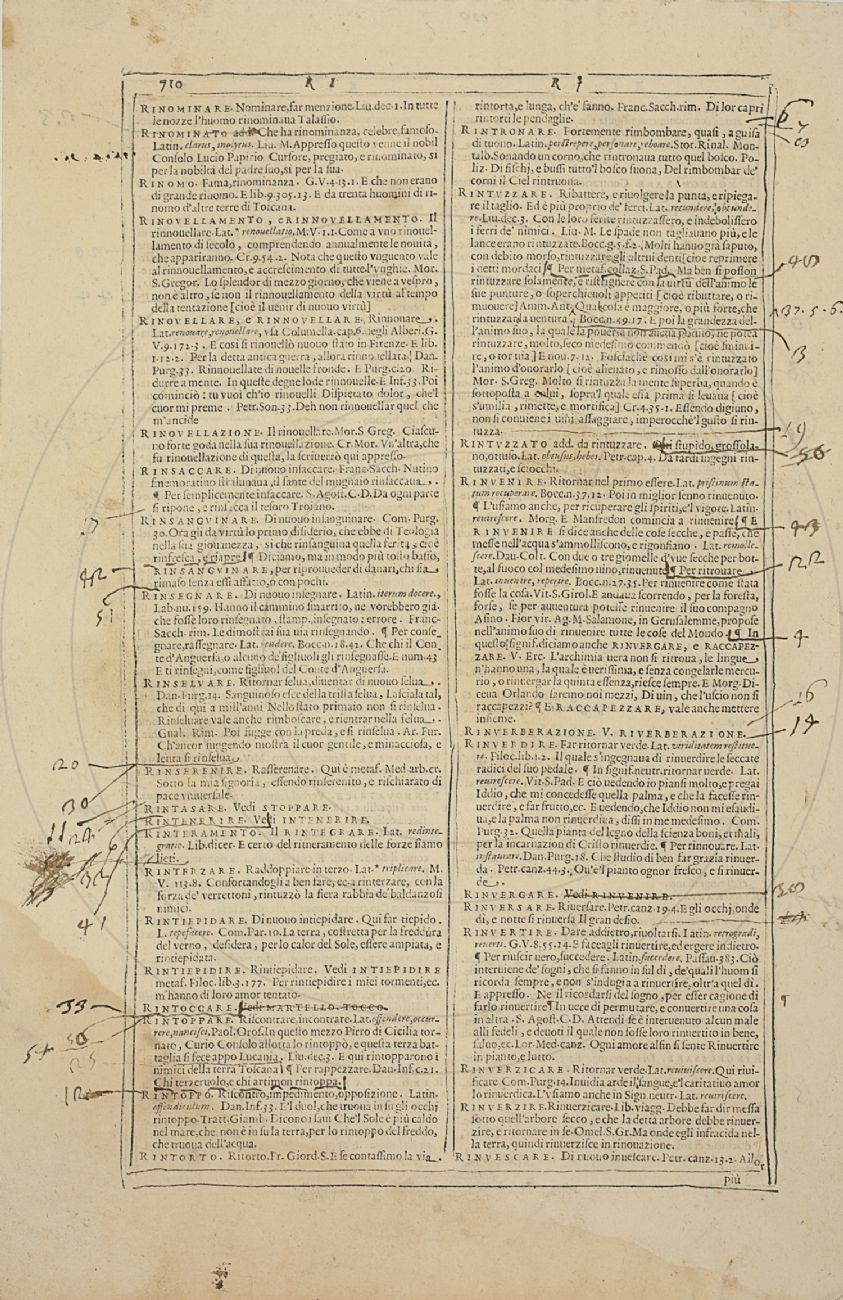 710 R I R I
RINOMINARE. Nominare, far menzione. Liu. dec. 1. In tutte
le nozze l'huomo rinominaua Talassio.
RINOMINATO add. Che ha rinominanza, celebre, famoso.
Latin. clarus, inclytus. Liu. M. Appresso questo venne il nobil
Consolo Lucio Papirio Cursore, pregiato, e rinominato, sì
per la nobiltà del padre suo, sì per la sua.
RINOMO. Fama, rinominanza. G. V. 4. 13. 1. E che non erano
di grande rinomo. E lib. 9. 305. 13. E da trenta huomini di ri-
nomo d'altre terre di Toscana.
RINOVELLAMENTO, e RINNOVELLAMENTO. Il
rinnouellare. Lat. renouellatio. M. V. 1. 1. Come a vno rinouel-
lamento di secolo, comprendendo annualmente le nouità,
che appariranno. Cr. 9. 54. 2. Nota che questo vnguento vale
al rinnouellamento, e accrescimento di tutte l'vnghie. Mor.
S. Gregor. Lo splendor di mezzo giorno, che viene a vespro,
non è altro, se non il rinnouellamento della virtù al tempo
della tentazione [cioè il uenir di nuouo virtù]
RINOVELLARE, e RINNOVELLARE. Rinnouare.
Lat. renouare, renouellare, vsa Columella. cap. 6. degli Alberi. G.
V. 9. 172. 3. E così si rinouellò nuouo stato in Firenze. E lib.
1. 12. 2. Per la detta antica guerra, allora rinnouellata. Dan.
Purg. 33. Rinnouellate di nouelle fronde. E Purg. c. 20. Ri-
durre a mente. In queste degne lode rinnouelle. E Inf. 33. Poi
cominciò: tu vuoi ch'io rinouelli Dispietato dolor, che'l
cuor mi preme. Petr. Son. 33. Deh non rinnouellar quel che
m'ancide
RINOVELLAZIONE. Il rinouellare. Mor. S Greg. Ciascu-
no forte goda nella sua rinouellazione. Cr. Mor. Vn'altra, che
fu rinouellazione di questa, la scriuerrò qui appresso.
RINSACCARE. Di nuouo insaccare. Franc. Sacch. Nutino
smemoratino si staua sua, il fante del mugnaio rinsaccaua.
¶ Per semplicemente insaccare. S. Agost. C. D. Da ogni parte
si ripone, e rinsacca il tesoro Troiano.
17
RINSANGVINARE. Di nuouo insanguinare. Com. Purg.
30. Ora gli da virtù lo primo disiderio, che ebbe di Teologia
nella sua giouanezza, sì che rinsanguina quella ferita, cioè
rinfresca, e riapre. ¶ Diciamo, ma in modo più tosto basso,
42
RINSANGVINARE, per riprouueder di danari, chi sia
rimaso senza essi affatto, o con pochi.
5
RINSEGNARE. Di nuouo insegnare. Latin. iterum docere.
Lab. nu. 159. Hanno il cammino smarrito, ne vorebbero già
che fosse loro rinsegnato, stamp. insegnato: errore. Franc.
Sacch. rim. Le dimostrai sua uia rinsegnando. ¶ Per conse-
gnare, rassegnare. Lat. reddere. Bocc. n. 18. 42. Che chi il Con-
te d'Anguersa, o alcuno de' figliuoli gli rinsegnasse. E num. 43
E ti rinsegni, come figliuol del Conte d'Anguersa.
RINSELVARE. Ritornar selua, diuentar di nuouo selua.
Dan. Purg. 14. Sanguinoso esce della trista selua, Lasciala tal,
che di qui a mill'anni Nello stato primaio non si rinselua.
Rinseluare vale anche rimboscare, e rientrar nella selua.
Gual. Rim. Poi fugge con la preda, e si rinselua. Ar. Fur.
Ch'ancor fuggendo mostra il cuor gentile, e minacciosa, e
lenta si rinselua.
20
RINSERENIRE. Rasserenare. Qui è metaf. Med. arb. cr.
Sotto la mia signoria, essendo rinserenito, e rischiarato di
pace vniuersale.
30
RINTASARE. Vedi STOPPARE.
11
RINTENERIRE. Vedi INTENERIRE.
RINTERAMENTO. Il RINTEGRARE. Lat. redinte-
gratio. Lib. dicer. E certo del rinteramento delle forze siamo
lieti.
RINTERZARE. Raddoppiare in terzo. Lat. triplicare. M.
V. 113. 8. Confortandogli a ben fare, ec. a rinterzare, con la
forza de' verrettoni, rintuzzò la fiera rabbia de' baldanzosi
nimici.
41
RINTIEPIDARE. Di nuouo intiepidare. Qui far tiepido.
L. tepefacere. Com. Par. 10. La terra, costretta per la freddura
del verno, desidera, per lo calor del Sole, essere ampiata, e
rintiepidata.
RINTIEPIDIRE. Rintiepidare. Vedi INTIEPIDIRE
metaf. Filoc. lib. 3. 177. Per rintiepidire i miei tormenti, ec.
m'hanno di loro amor tentato.
33
RINTOCCARE. Vedi MARTELLO. TOCCO.
RINTOPPARE. Riscontrare, incontrare. Lat. offendere, occur-
rere, nancisci. Paol. Oros. In questo mezzo Pirro di Cicilia tor-
54
nato, Curio Consolo allotta lo rintoppò, e questa terza bat-
taglia si fece appo Lucania. Liu. dec. 3. E qui rintopparono i
nimici della terra Toscana. ¶ Per rappezzare. Dan. Inf. c. 21.
Chi terzeruolo, e chi artimon rintoppa.
12
RINTOPPO. Riscontro, impedimento, opposizione. Latin.
offendiculum. Dan. Inf. 33. E'l duol, che truoua in su gli occhj
rintoppo. Tratt. Giamb. Dicono i saui Che'l Sole è più caldo
nel mare, che non è in su la terra, per lo rintoppo del freddo,
che truoua dell'acqua.
RINTORTO. Ritorto. Fr. Giord. S. E se contassimo la via
rintorta, e lunga, ch'e' fanno. Franc. Sacch. rim. Di lor capri
rintorti le pendaglie.
6
RINTRONARE. Fortemente rimbombare, quasi, a guisa
di tuono. Latin. perstrepere, personare, reboare. Stor. Rinal. Mon-
talb. Sonando un corno, che rintronaua tutto quel bosco. Po-
liz. Di fischj, e bussi tutto'l bosco suona, Del rimbombar de'
corni il Ciel rintruona.
RINTUZZARE. Ribattere, e riuolger la punta, e ripiega-
re il taglio. Ed è più proprio de' ferri. Lat. retundere, obtunde-
re. Liu. dec. 3. Con le loro ferite rintuzzassero, e indebolissero
i ferri de' nimici. Liu. M. Le spade non tagliauano più, e le
lance erano rintuzzate. Bocc. g. 5. f. 2. Molti hanno già saputo,
con debito morso, rintuzzare gli altrui denti [cioè reprimere
i detti mordaci] ¶ Per metaf. collaz. S. Pad. Ma ben si posson
rintuzzare solamente, e ristrignere con la virtù dell'animo le
sue punture, o soperchieuoli appetiti [cioè ributtare, o ri-
muouere] Amm. Ant. Qual cosa è maggiore, o più forte, che
37. 5. 6.
rintuzzar la uentura? Bocc. n. 49. 17. E poi la grandezza del-
l'animo suo, la quale la pouertà non auea potuto, ne potea
rintuzzare, molto seco medesimo commendò [cioè sminui-
3
re, o tor uia] E nou. 7. 12. Posciache così mi s'è rintuzzato
l'animo d'onorarlo [cioè alienato, e rimosso dall'onorarlo]
Mor. S. Greg. Molto si rintuzza la mente superba, quando è
sottoposta a colui, sopra'l quale essa prima si leuaua [cioè
s'umilia, rimette, e mortifica] Cr. 4. 35. 1. Essendo digiuno,
non si conuiene i uini assaggiare, imperocchè'l gusto si rin-
tuzza.
19
RINTUZZATO add. da rintuzzare. Qui stupido, grossola-
no, ottuso. Lat. obtusus, hebes. Petr. cap. 4. Da tardi ingegni rin-
56
tuzzati, e sciocchi.
RINVENIRE. Ritornar nel primo essere. Lat. pristinum sta-
tum recuperare. Bocc. n. 37. 12. Poi in miglior senno rinuenuto.
¶ L'usiamo anche, per ricuperare gli spiriti, e'l vigore. Latin.
reuiuiscere. Morg. E Manfredon comincia a rinuenire. ¶ E
RINVENIRE si dice anche delle cose secche, e passe, che
messe nell'acqua s'ammolliscono, e rigonfiano. Lat. remolle-
scere. Dau. Colt. Con due o tre giomelle d'vue secche per bot-
te, al fuoco col medesimo uino, rinuenute. ¶ Per ritrouare.
22
Lat. inuenire, reperire. Bocc. n. 27. 35. Per rinuenire come stata
fosse la cosa. Vit. S. Girol. E andaua scorrendo, per la foresta,
forse, se per auuentura potesse rinuenire il suo compagno
Asino. Fior. vir. Ag. M. Salamone, in Gerusalemme, propose
nell'animo suo di rinuenire tutte le cose del Mondo. ¶ In
4
questo signif. diciamo anche RINVERGARE, e RACCAPEZ-
ZARE. V. Erc. L'archimia uera non si ritroua, le lingue
n'hanno una, la quale è uerissima, e senza congelar lo mercu-
rio, o rinuergar la quinta essenza, riesce sempre. E Morg. Di-
ceua Orlando saremo noi mezzi, Di uin, che l'uscio non si
raccapezzi? ¶ E RACCAPEZZARE, vale anche mettere
insieme.
16
RINVERBERAZIONE. V. RIVERBERAZIONE.
14
RINVERDIRE. Far ritornar verde. Lat. viriditatem restitue-
re. Filoc. lib. 1. 2. Il quale s'ingegnaua di rinuerdire le seccate
radici del suo pedale. ¶ In signif. neutr. ritornar uerde. Lat.
reuirescere. Vit. S. Pad. E ciò uedendo io piansi molto, e pregai
Iddio, che mi concedesse quella palma, e che la facesse rin-
uerdire, e far frutto, ec. E uedendo, che Iddio non mi esaudi-
ua, e la palma non rinuerdiua, dissi in me medesimo. Com.
Purg. 32. Quella pianta del legno della scienza boni, et mali,
per la incarnazion di Cristo rinuerdie. ¶ Per rinnouare. Lat.
instaurare. Dan. Purg. 18. Che studio di ben far grazia rinuer-
da. Petr. canz. 44. 3. Ou'è'l pianto ognor fresco, e si rinuer-
de.
RINVERGARE. Vedi RINVENIRE.
30
RINVERSARE. Riuersare. Petr. canz. 19. 4. E gli occhj, onde
dì, e notte si rinuersa Il gran desio.
RINVERTIRE. Dare addietro, riuoltarsi. Latin. retrogradi,
reuerti. G. V. 8. 55. 14. E faceagli rinuertire, ed ergere indietro.
¶ Per riuscir uero, succedere. Latin. succedere. Passau. 383. Ciò
interuiene de' sogni, che si fanno in sul dì, de' quali l'huom si
ricorda sempre, e non s'indugia a rinuertire, oltr'a quel dì.
¶
E appresso. Ne il ricordarsi del sogno, per esser cagione di
farlo rinuertire ¶ In uece di permutare, e conuertire una cosa
in altra. S. Agost. C. D. Attendi se è interuenuto alcun male
alli fedeli, e deuoti il quale non fosse loro rinuertito in bene,
saluo, ec. Lor. Med. canz. Ogni amore alfin si sente Rinuertire
in pianto, e lutto.
RINVERZICARE. Ritornar verde. Lat. reuiuiscere. Qui riui-
ficare. Com. Purg. 14. Inuidia arde il sangue, e'l caritatiuo amor
lo rinuerdica. L'vsiamo anche in Sign. neutr. Lat. reuirescere.
RINVERZIRE. Rinuerzicare. Lib. viagg. Debbe far dir messa
sotto quell'arbore secco, e che la detta arbore debbe rinuer-
zire, e ritornare in se. Omel. S. Gr. Ma onde egli infracida nel-
la terra, quindi rinuerzisce in rinouazione.
RINVESCARE. Di nuouo inuescare. Petr. canz. 13. 2. Allor
più